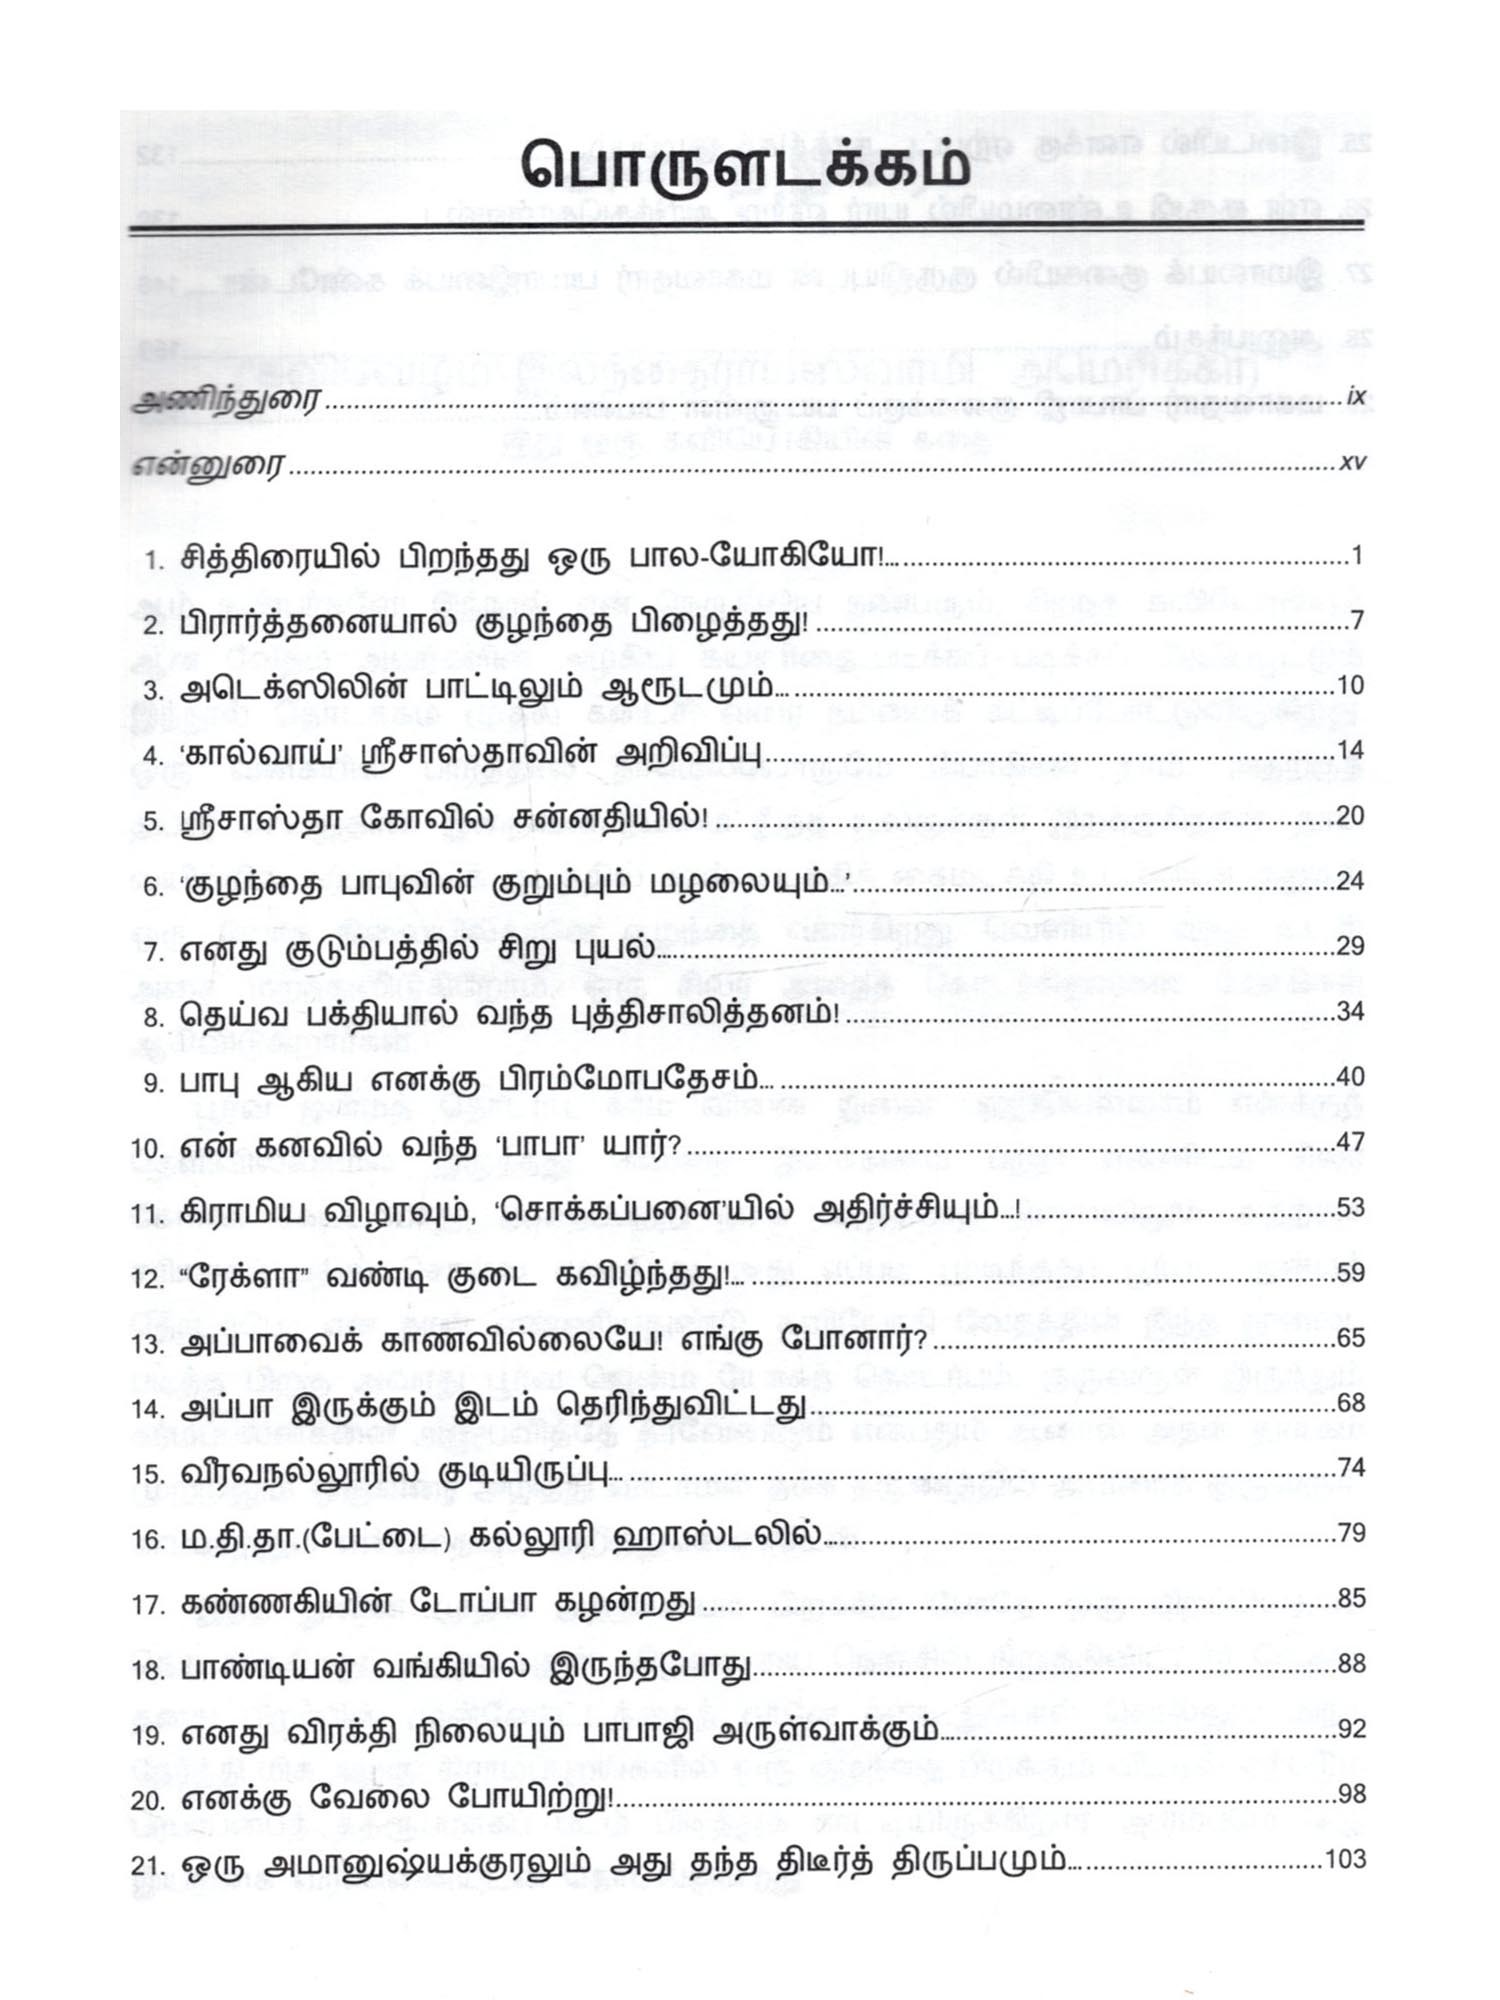 பொருளடக்கம்
அணிந்துரை ix
என்னுரை xv
1. சித்திரையில் பிறந்தது ஒரு பால-யோகியோ!... 1
2. பிரார்த்தனையால் குழந்தை பிழைத்தது! 7
3. அடெக்ஸிலின் பாட்டிலும் ஆரூடமும்... 10
4. ‘கால்வாய்’ ஸ்ரீசாஸ்தாவின் அறிவிப்பு 14
5. ஸ்ரீசாஸ்தா கோவில் சன்னதியில்! 20
6. ‘குழந்தை பாபுவின் குறும்பும் மழலையும்...’ 24
7. எனது குடும்பத்தில் சிறு புயல்... 29
8. தெய்வ பக்தியால் வந்த புத்திசாலித்தனம்! 34
9. பாபு ஆகிய எனக்கு பிரம்மோபதேசம்... 40
10. என் கனவில் வந்த ‘பாபா’ யார்? 47
11. கிராமிய விழாவும், ‘சொக்கப்பனை’யில் அதிர்ச்சியும்...! 53
12. “ரேக்ளா” வண்டி குடை கவிழ்ந்தது!... 59
13. அப்பாவைக் காணவில்லையே! எங்கு போனார்? 65
14. அப்பா இருக்கும் இடம் தெரிந்துவிட்டது 68
15. வீரவநல்லூரில் குடியிருப்பு... 74
16. ம.தி.தா.(பேட்டை) கல்லூரி ஹாஸ்டலில் 79
17. கண்ணகியின் டோப்பா கழன்றது 85
18. பாண்டியன் வங்கியில் இருந்தபோது 88
19. எனது விரக்தி நிலையும் பாபாஜி அருள்வாக்கும்... 92
20. எனக்கு வேலை போயிற்று! 98
21. ஒரு அமானுஷ்யக்குரலும் அது தந்த திடீர்த் திருப்பமும்... 103